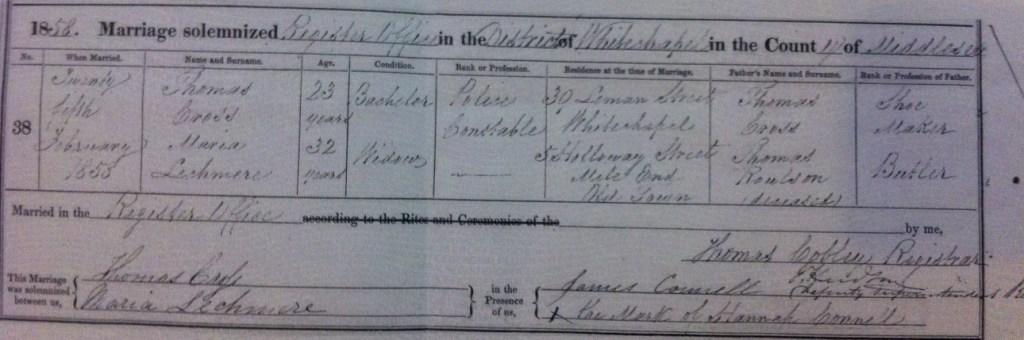 1858. Marriage solemnized Register Office in the District of Whitechapel in the County of Middlesex
No. When Married. Name and Surname. Age. Condition. Rank or Profession. Residence at the time of Marriage. Father's Name and Surname. Rank or Profession of Father.
Twenty Thomas 23 Bachelor Police 30 Leman Street Thomas Shoe
fifth Cross years Constable Whitechapel Cross Maker
38 February Maria 32 Widow 5 Holloway Street Thomas Butler
1858 Lechmere years —— Mile End Roulson
Old Town (deceased)
Married in the Register Office according to the Rites and Ceremonies of the by me,
Thomas Registrar
This Marriage was solemnized between us, Thomas Cross in the Presence of us, James Connell
Maria Lechmere X the Mark of Hannah Connell